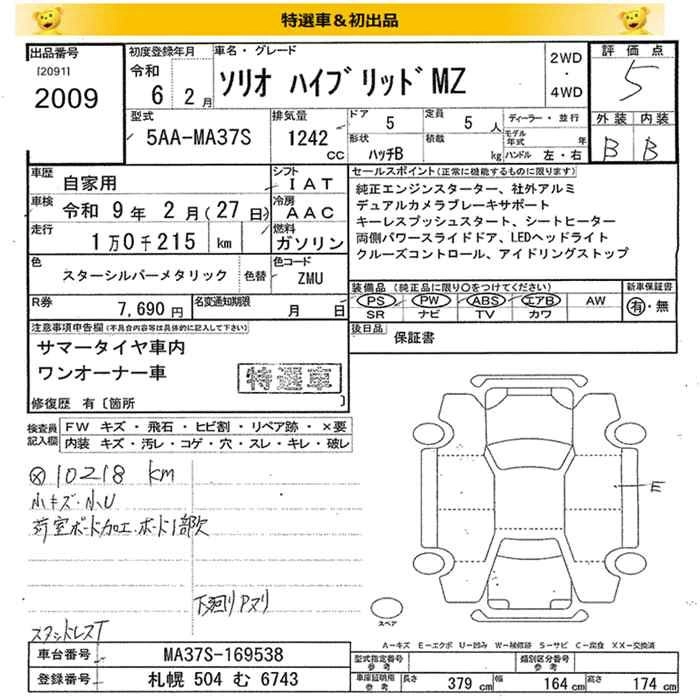 特選車＆初出品
出品番号
[2091]
2009
初度登録年月
令和
6 2月
車名・グレード
ソリオ ハイブリッドMZ
2WD
・
4WD
評価点
5
外装 内装
B B
型式
5AA-MA37S
排気量
1242
CC
ドア
5
定員
5 人
形状
ハッチB
積載
kg
ディーラー・並行
モデル年式 年
ハンドル 左・右
車歴
自家用
シフト
IAT
車検
令和 9年 2月(27日)
冷房
AAC
走行
1万0千215 km
燃料
ガソリン
色
スターシルバーメタリック
色替
色コード
ZMU
R券
7,690円
名変通知期限
月 日
セールスポイント(正常に機能するものに限ります)
純正エンジンスターター、社外アルミ
デュアルカメラブレーキサポート
キーレスプッシュスタート、シートヒーター
両側パワースライドドア、LEDヘッドライト
クルーズコントロール、アイドリングストップ
装備品(純正品に限り○をつけてください)
新車保証書
PS PW ABS エアB AW
SR ナビ TV カワ
有・無
後日品
保証書
注意事項申告欄(不具合内容等は具体的に記入して下さい)
サマータイヤ車内
ワンオーナー車
特選車
修復歴 有〔箇所
検査員記入欄
FW キズ・飛石・ヒビ割・リペア跡・×要
内装 キズ・汚レ・コゲ・穴・スレ・キレ・破レ
10218 km
小キズ・小U
荷室ボード加工・ボード1部欠
下廻りPヌリ
スタッドレスT
E
スペア
A－キズ E－エクボ U－凹み W－補修跡 S－サビ C－腐食 XX－交換済
車台番号
MA37S-169538
登録番号
札幌 504 む 6743
型式指定番号
参考
類別区分番号
参考
車庫証明用
参考
長さ
379 cm
幅
164 cm
高さ
174 cm